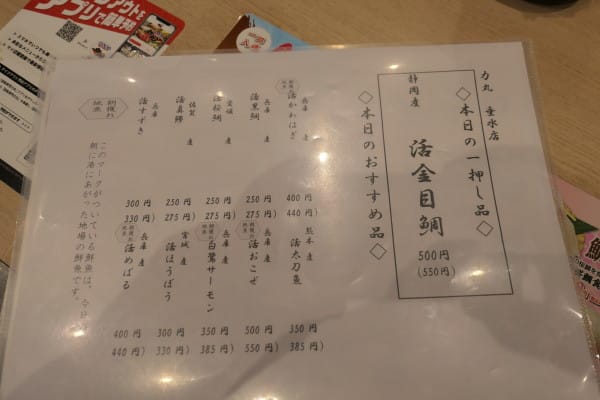 力丸 垂水店
◇本日の一押し品◇
静岡産
活金目鯛
500円
(550円)
◇本日のおすすめ品◇
朝獲れ地魚
兵庫産
活かわはぎ
400円
440円)
兵庫産
活黒鯛
250円
275円)
愛媛産
活桜鯛
250円
275円)
佐賀産
活真鯵
250円
275円)
兵庫産
活すずき
300円
330円)
熊本産
活太刀魚
350円
385円)
朝獲れ地魚
兵庫産
活おこぜ
500円
550円)
朝獲れ地魚
兵庫産
白鷺サーモン
350円
385円)
宮城産
活ほうぼう
300円
330円)
朝獲れ地魚
兵庫産
活めばる
400円
440円)
朝獲れ地魚
このマークがついている鮮魚は、今日の
朝に港にあがった地場の鮮魚です。
アプリで最